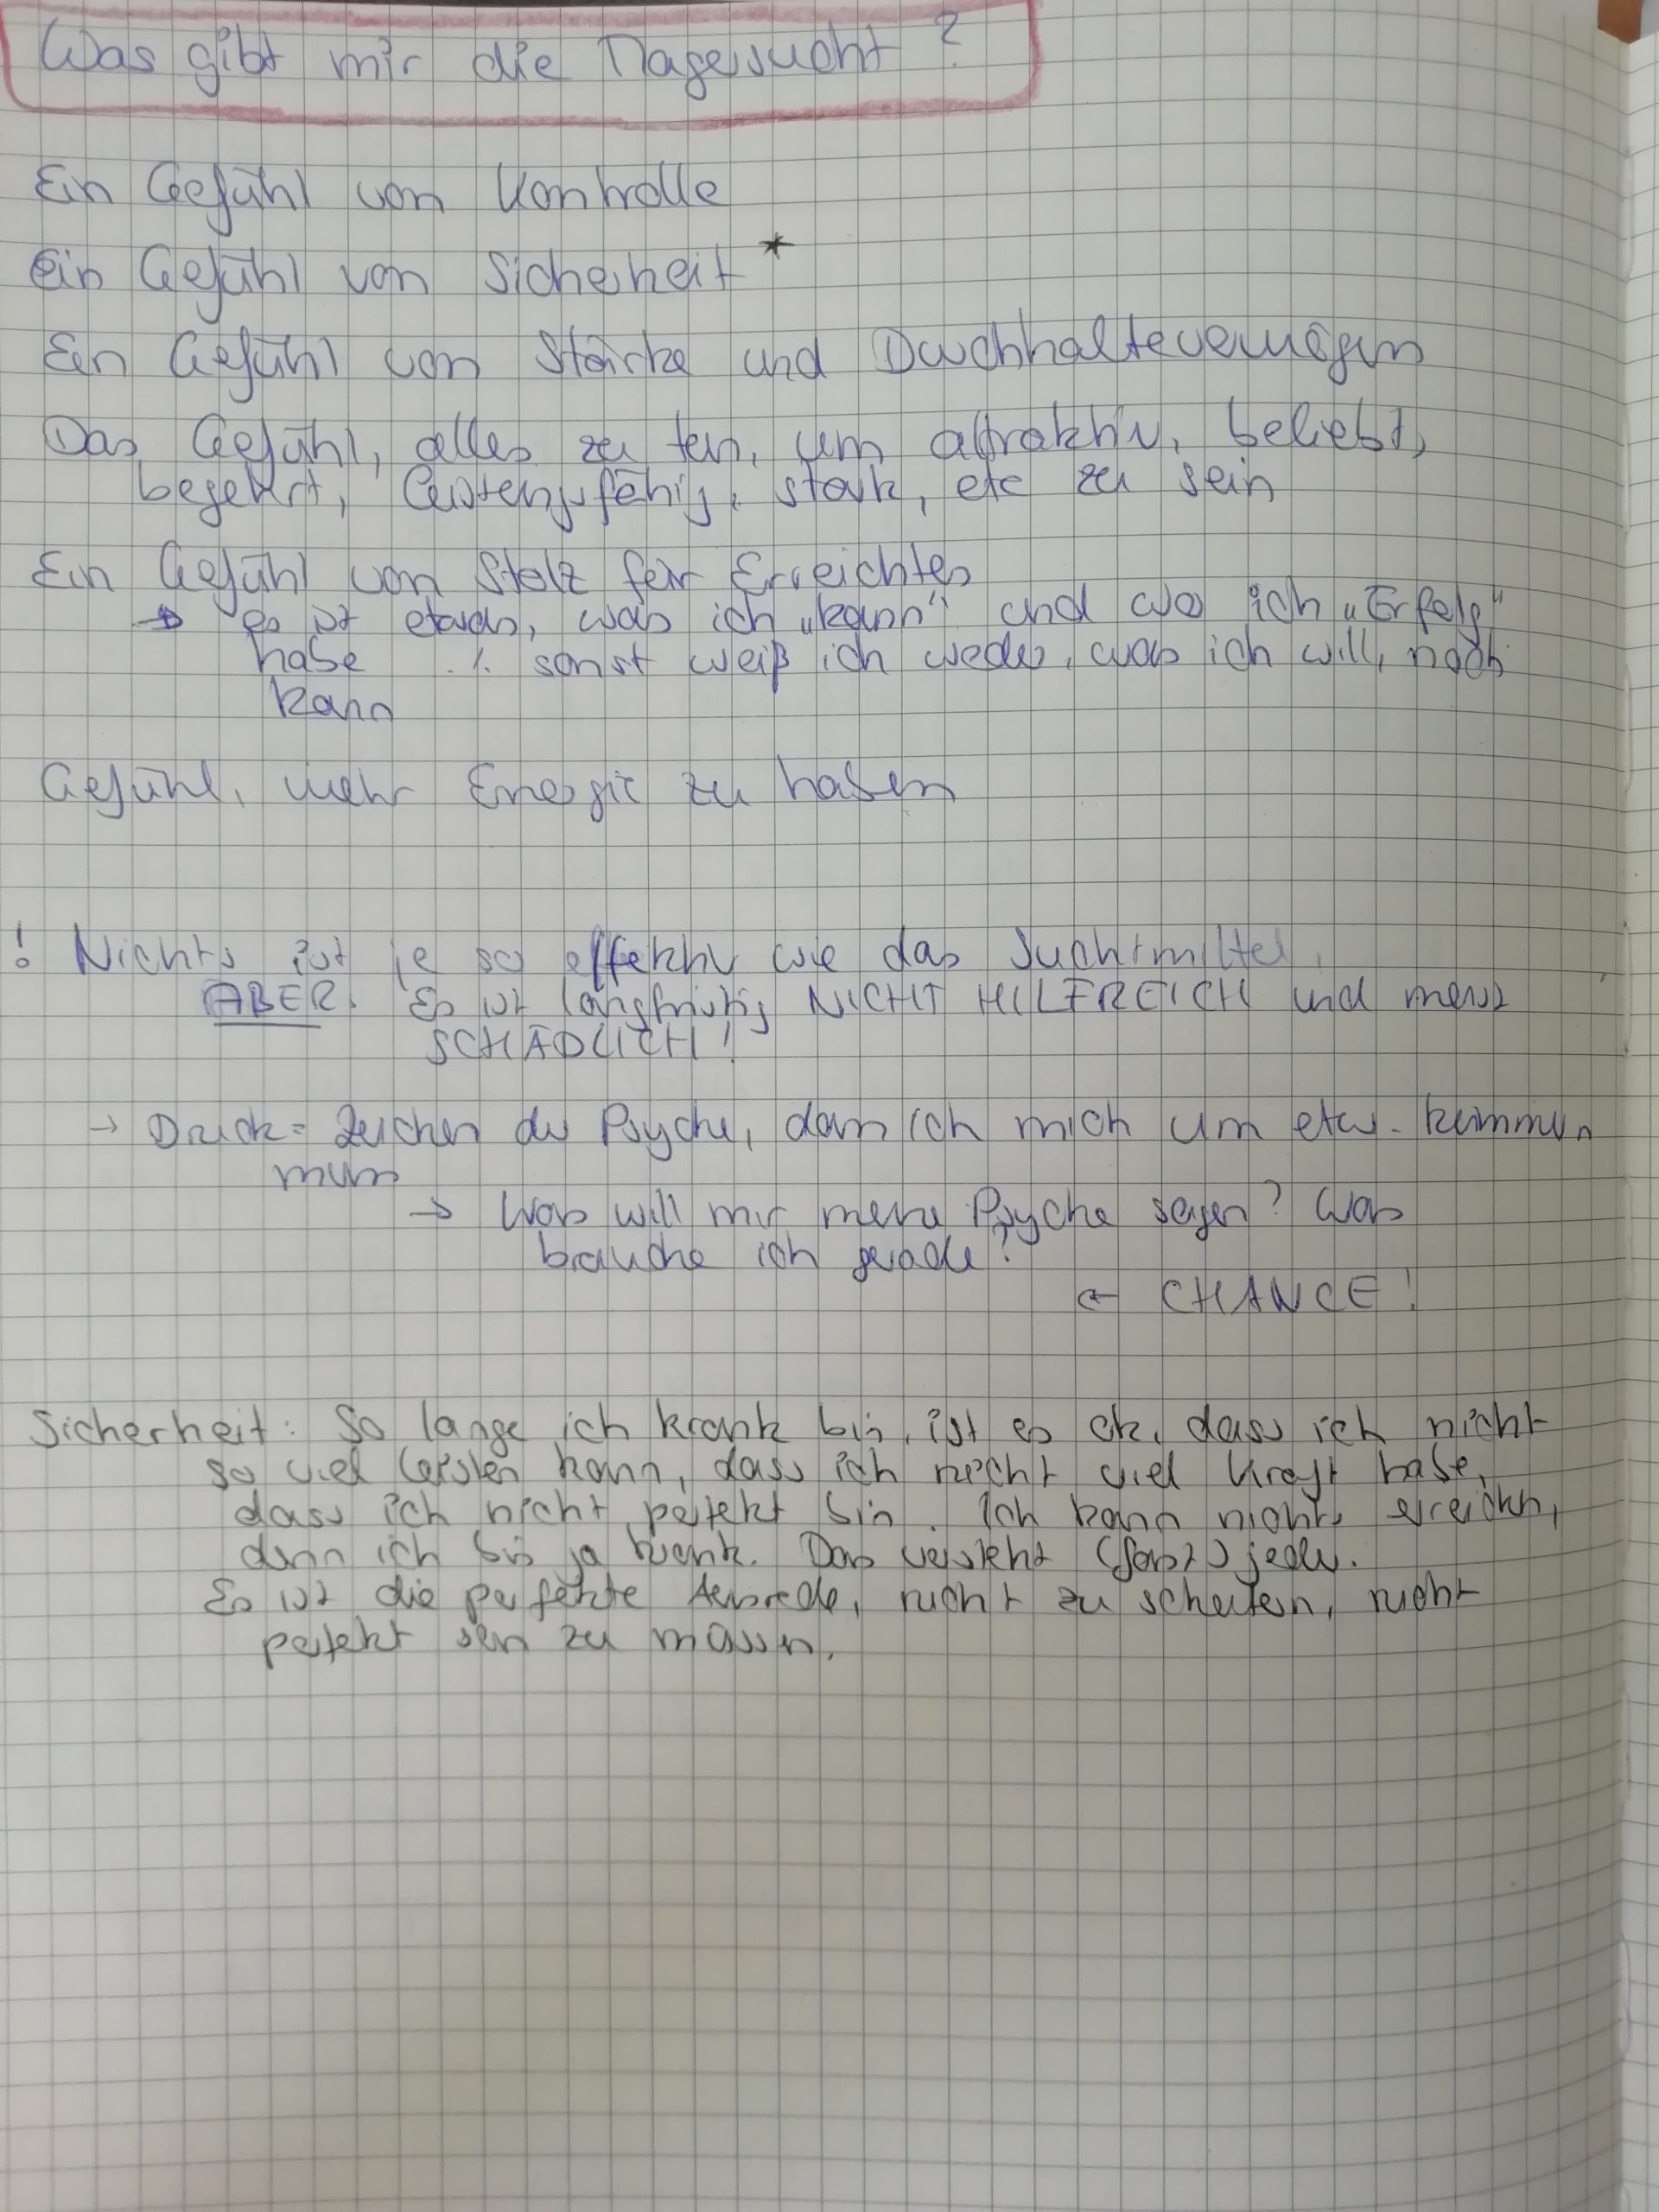 Was gibt mir die Magersucht?
Ein Gefühl von Kontrolle
Ein Gefühl von Sicherheit *
Ein Gefühl von Stärke und Durchhaltevermögen
Das Gefühl, alles zu tun, um attraktiv, beliebt,
begehrt, leistungsfähig, stark, etc zu sein
Ein Gefühl von Stolz für Erreichtes
→ es ist etwas, was ich „kann“ und wo ich „Erfolg“
habe ./. sonst weiß ich weder, was ich will, noch
kann
Gefühl, mehr Energie zu haben
! Nichts ist je so effektiv wie das Suchtmittel,
ABER: Es ist langfristig NICHT HILFREICH und meist
SCHÄDLICH!
→ Druck = Zeichen der Psyche, dass ich mich um etw. kümmern
muss
→ Was will mir meine Psyche sagen? Was
brauche ich gerade?
← CHANCE!
Sicherheit: So lange ich krank bin, ist es ok, dass ich nicht
so viel leisten kann, dass ich nicht viel Kraft habe,
dass ich nicht perfekt bin. Ich kann nichts erreichen,
denn ich bin ja krank. Das versteht (fast) jeder.
Es ist die perfekte Ausrede, nicht zu scheitern, nicht
perfekt sein zu müssen.